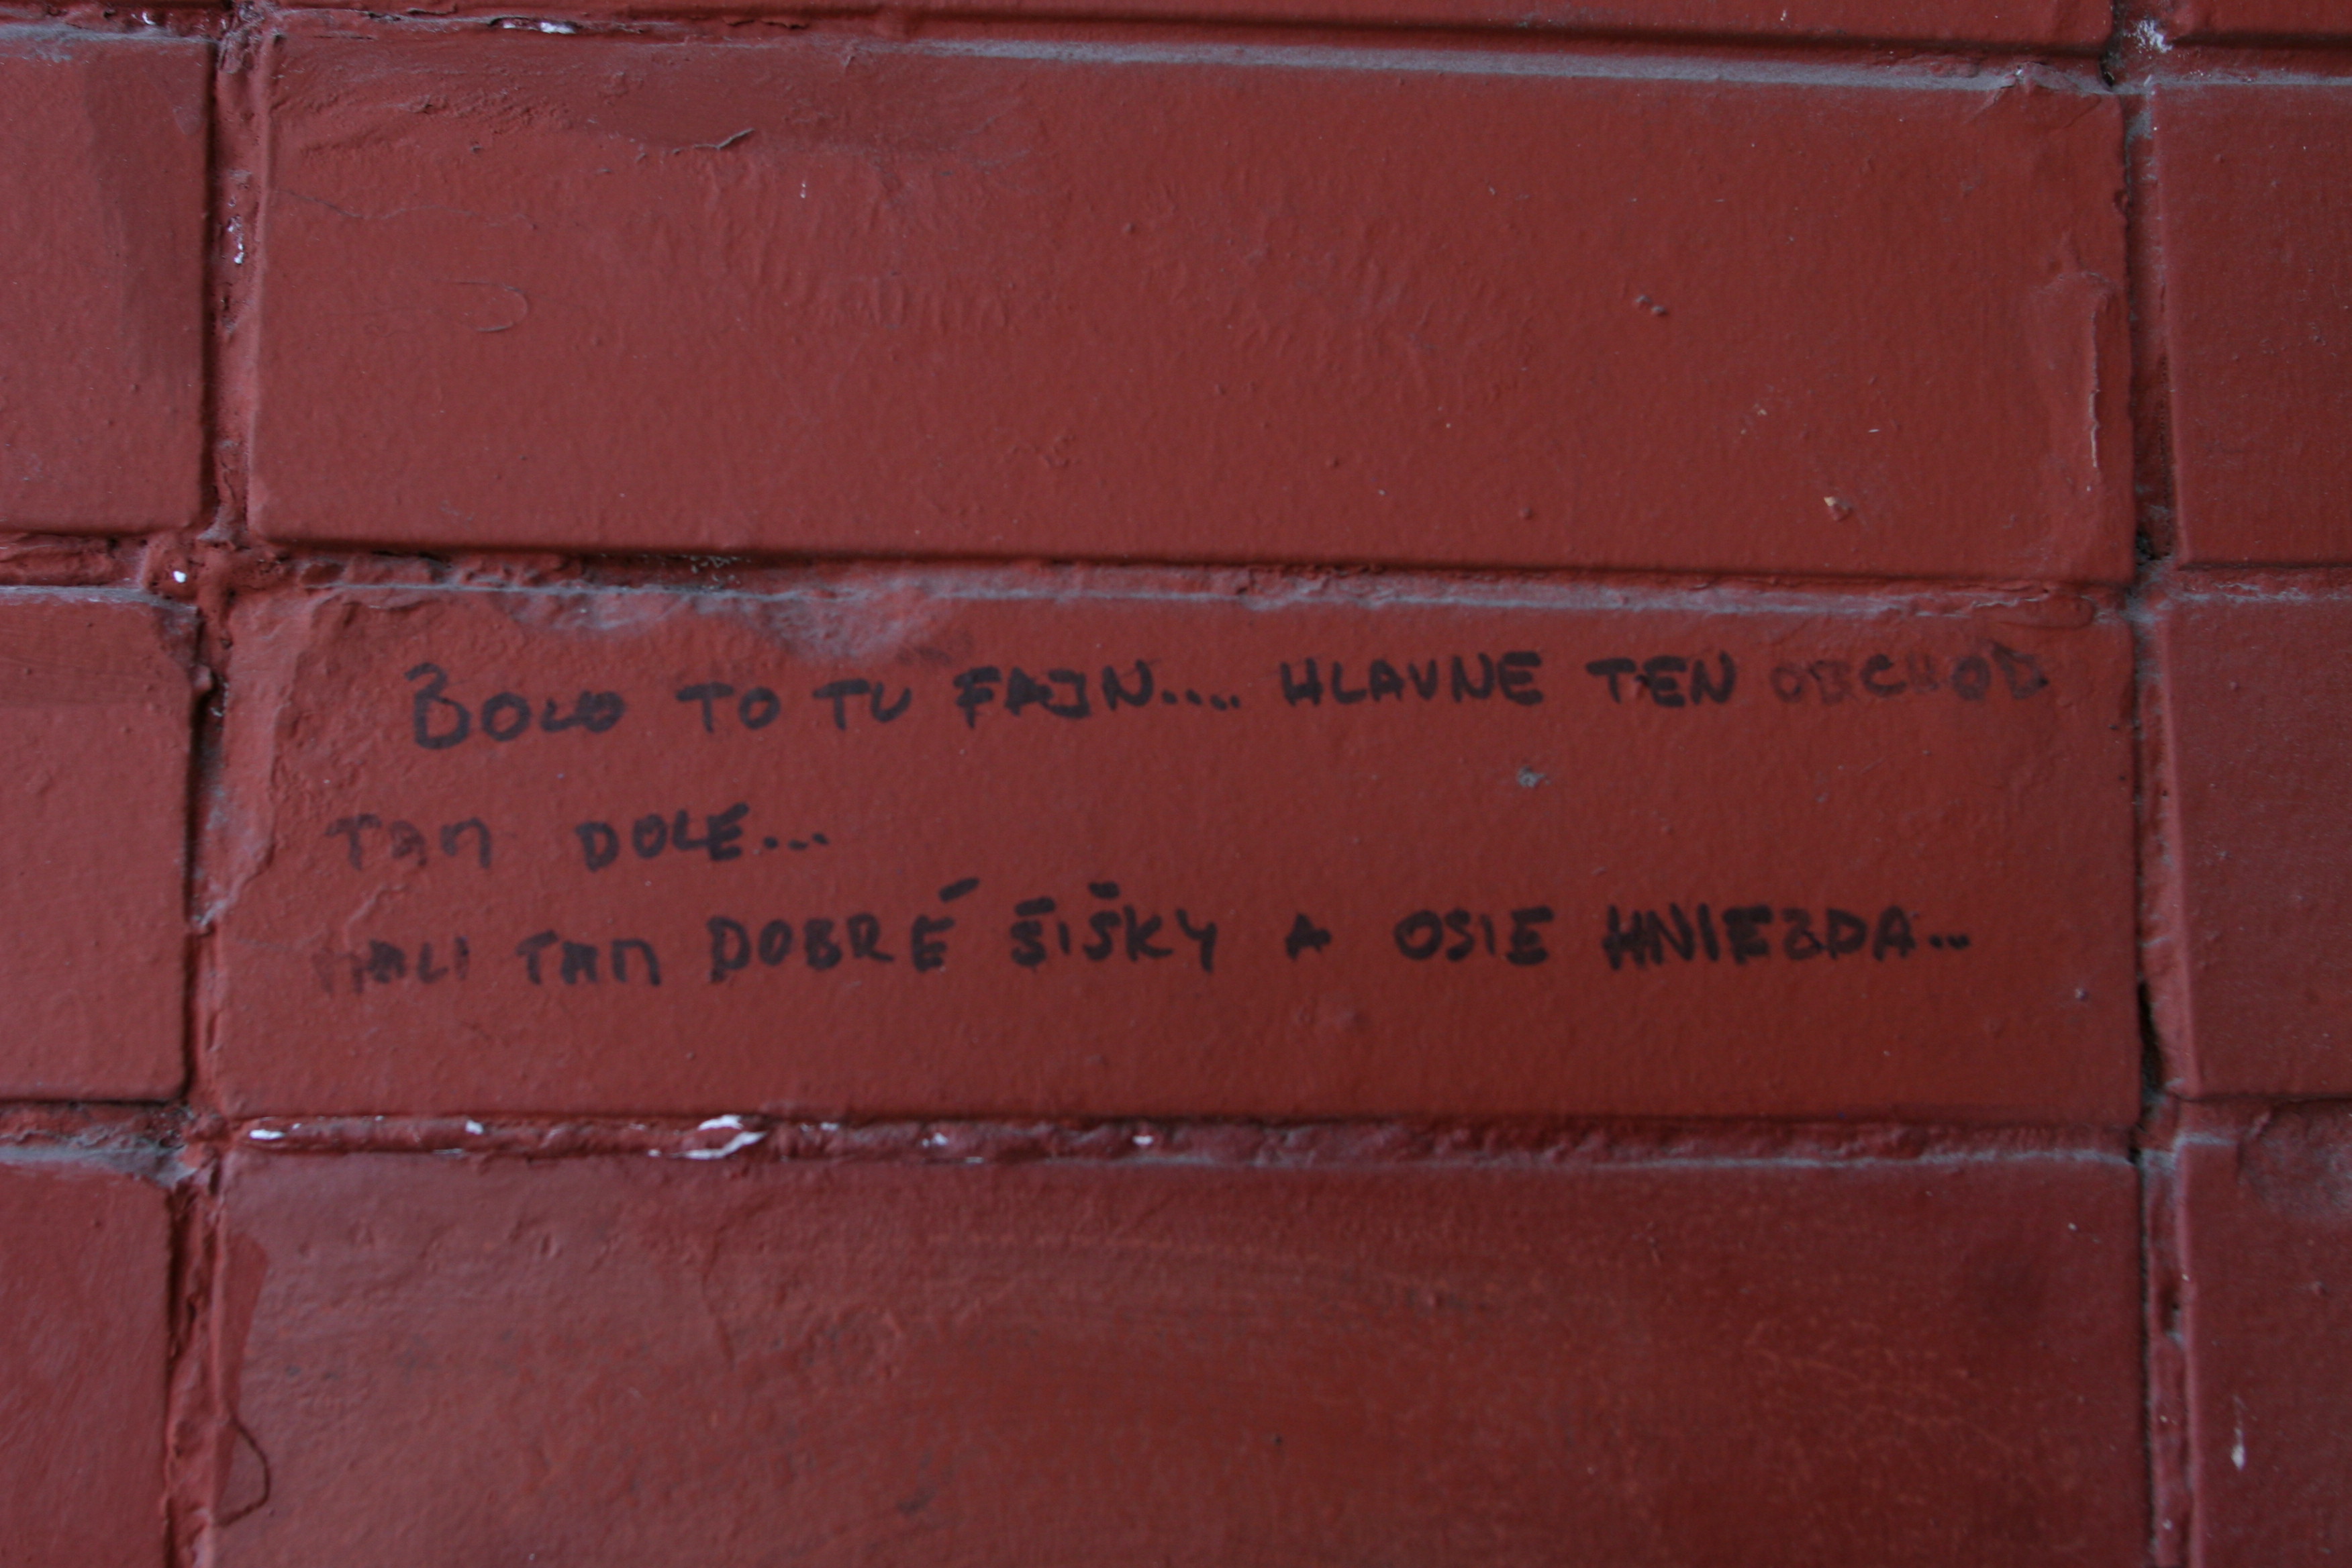 BOLO TO TU FAJN.... HLAVNE TEN OBCHOD
TAM DOLE...
MALI TAM DOBRÉ ŠIŠKY A OSIE HNIEZDA...